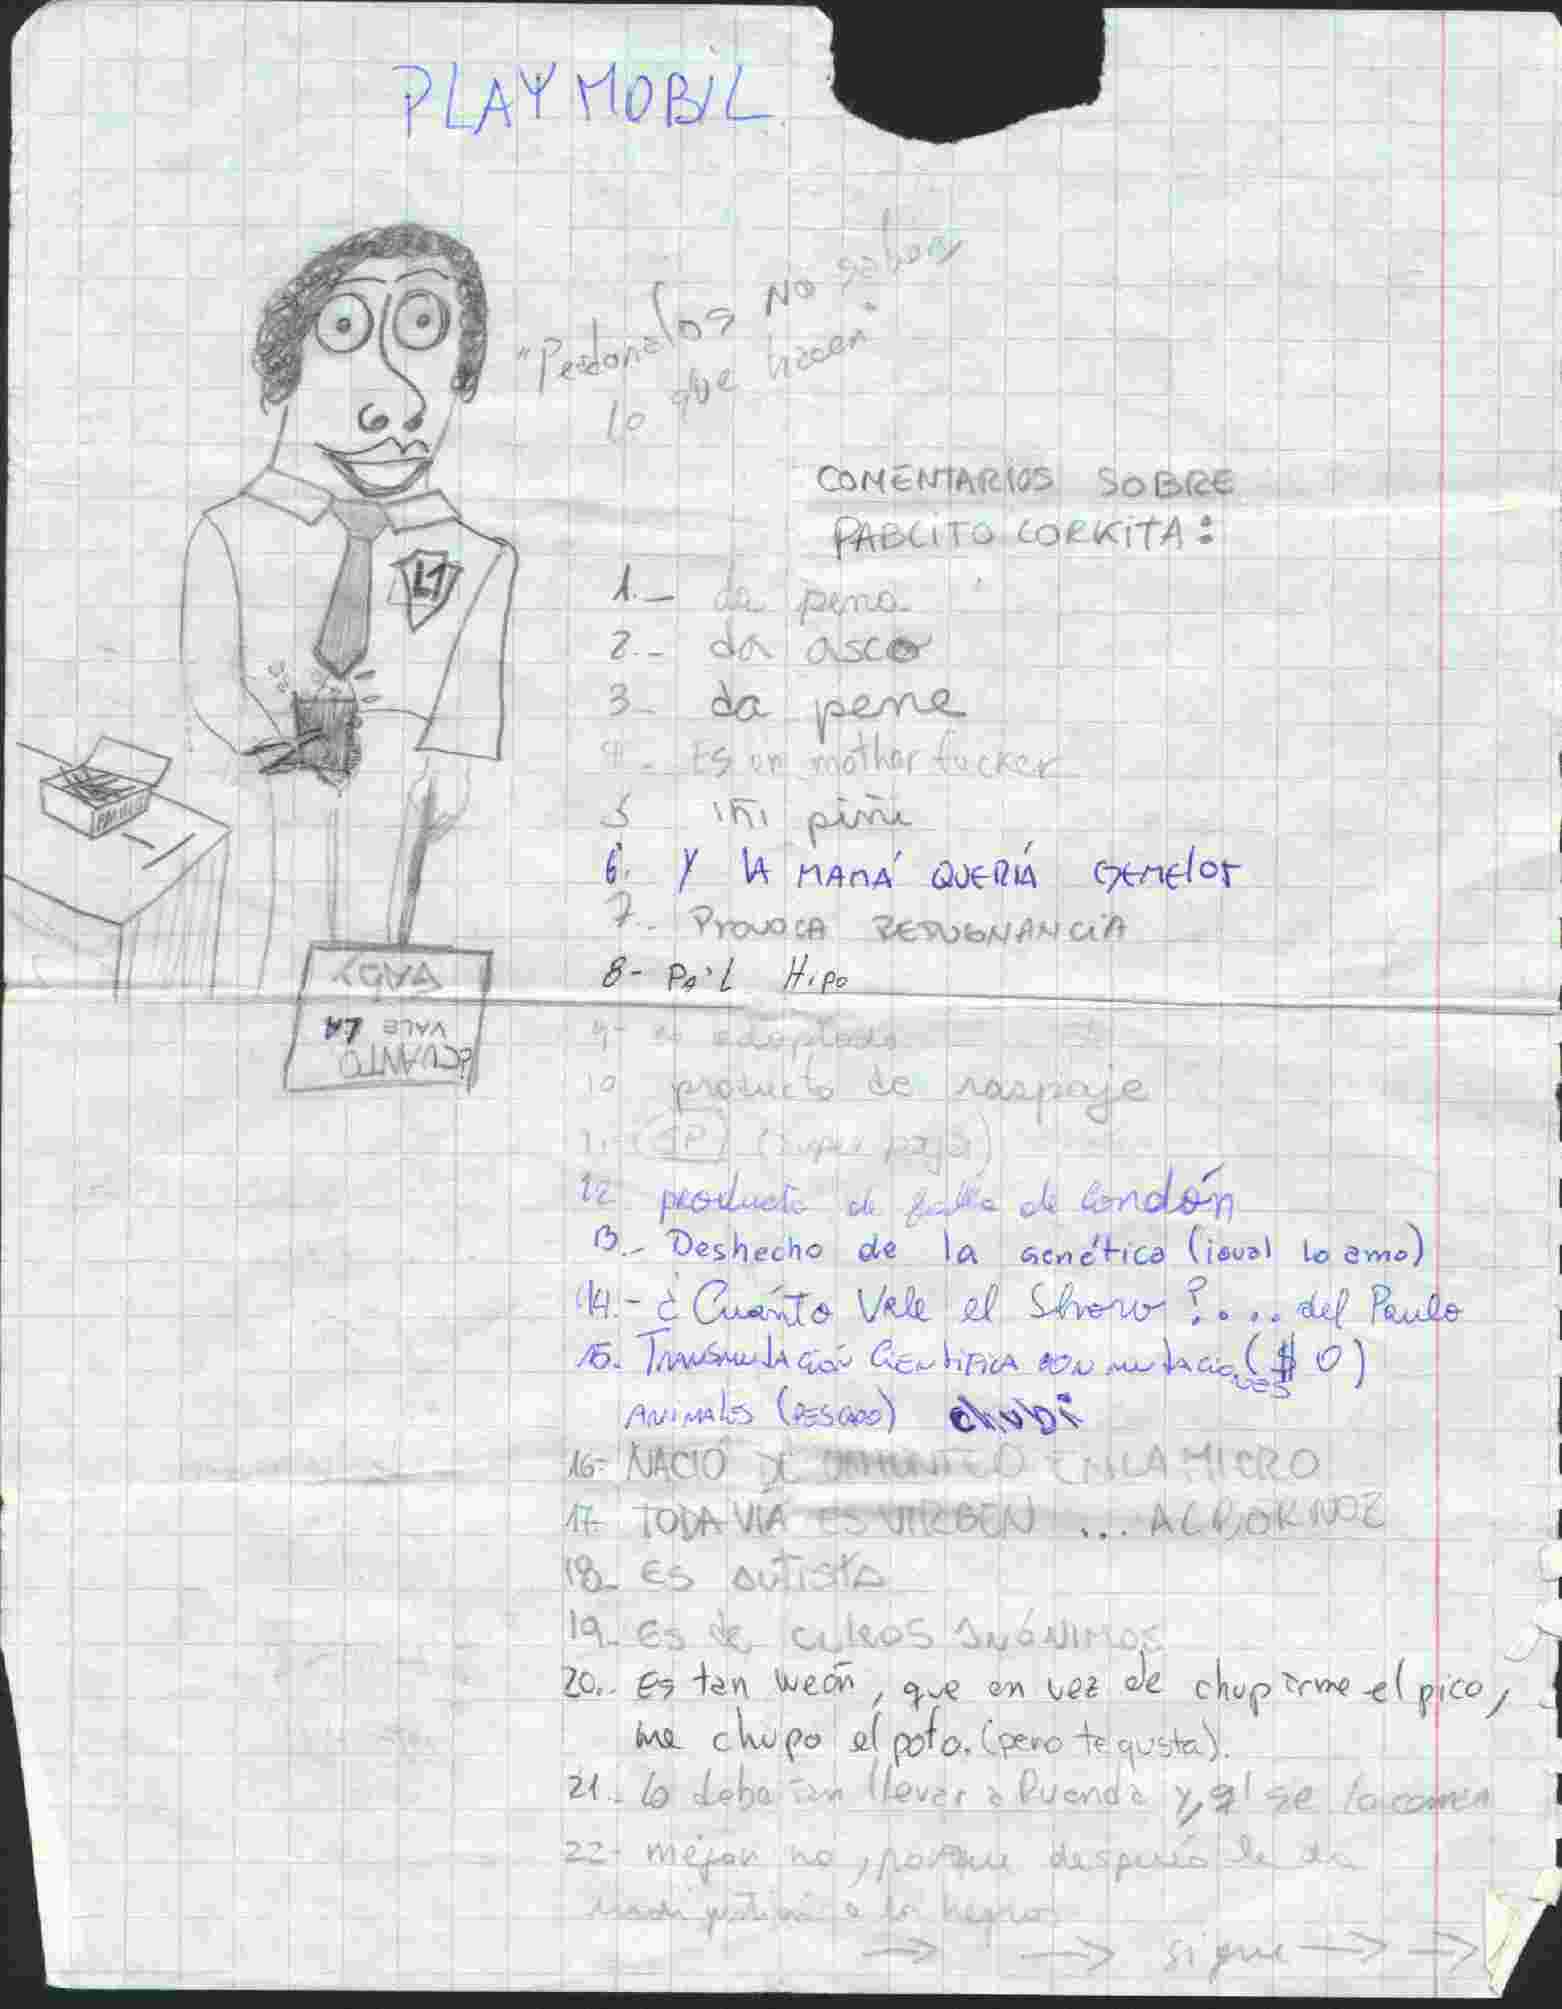 PLAYMOBIL
"Perdonalos no saben
lo que hacen"
COMENTARIOS SOBRE
PABLITO CORKITA:
L1
1._ da pena
2.- da asco
3- da pene
4- Es un mother fucker
5 iñi piñi
6. Y LA MAMÁ QUERÍA GEMELOS
7.- PROVOCA REPUGNANCIA
8- PA'L HIPO
¿CUANTO
VALE LA
9- es adoptado
10 producto de raspaje
11- SP (super pajero)
12 producto de falla de condón
13.- Deshecho de la genética (igual lo amo)
14.- ¿Cuánto Vale el Show?.... del Paulo
15. TRANSMUTACIÓN CIENTIFICA CON MUTACIONES ($ 0)
ANIMALES (PESCADO) chubi
16- NACIÓ DE EN LA MICRO
17- TODAVIA ES VIRGEN ... ALBORNOZ
18- ES AUTISTA
19- Es de CULROS ANÓNIMOS
20.. Es tan weón, que en vez de chuparme el pico,
me chupo el poto. (pero te gusta).
21.- lo deberian llevar a Ruanda y, si se lo comen
22- mejor no, porque después le da
a los negros
sigue